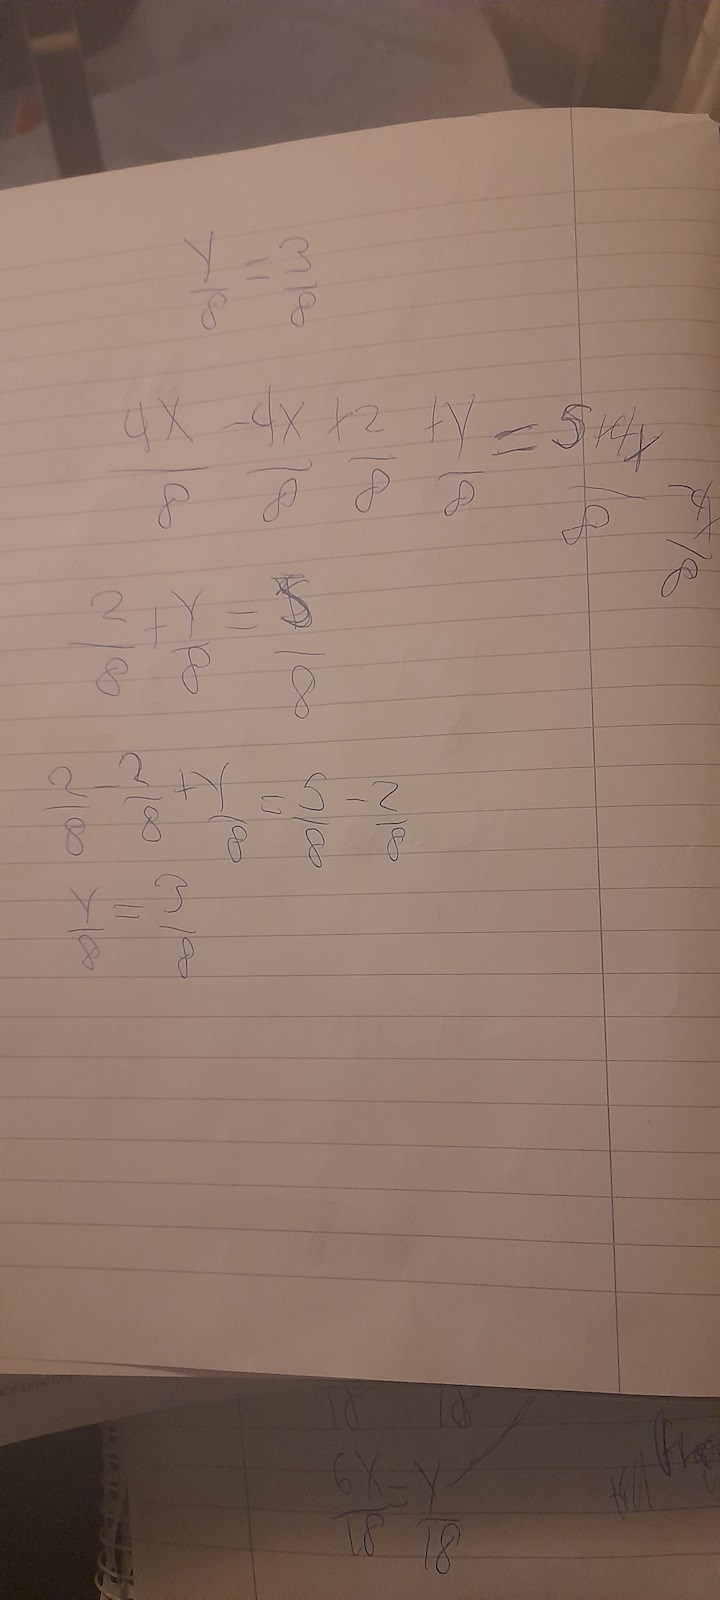 Y/8 = 3/8
4X/8 - 4X/8 + 2/8 + Y/8 = 5+4x/8 - 4x/8
2/8 + Y/8 = 5/8
2/8 - 2/8 + Y/8 = 5/8 - 2/8
Y/8 = 3/8
18 18
6X/18 = Y/18